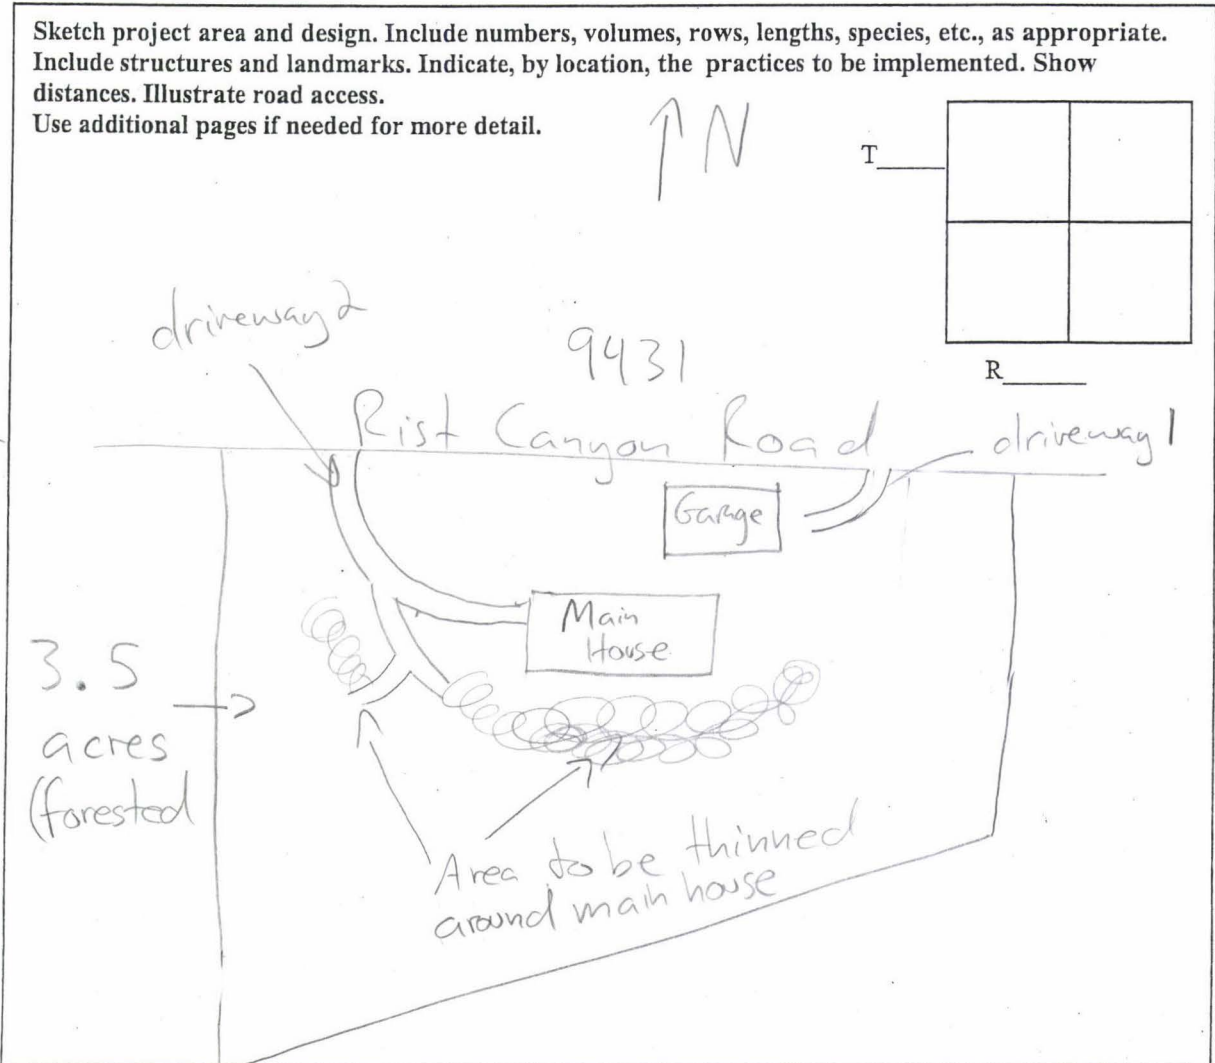 Sketch project area and design. Include numbers, volumes, rows, lengths, species, etc., as appropriate.
Include structures and landmarks. Indicate, by location, the practices to be implemented. Show
distances. Illustrate road access.
Use additional pages if needed for more detail.
N
T_____
R_____
driveway 2
9431
Rist Canyon Road
driveway 1
Garage
Main
House
3.5
acres
(forested
Area to be thinned
around main house